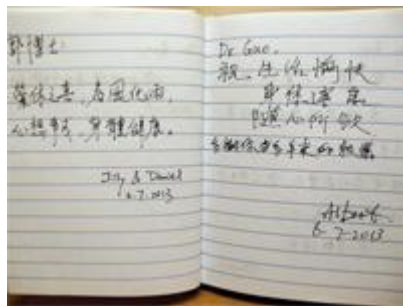 郭博士:
榮休之喜，春風化雨，
心想事成，身體健康。
Jily & Daniel
6.7.2013
Dr Guo,
祝，生活愉快
身体健康
隨心所欲
多謝你多年來的教導
Albert
6.7.2013